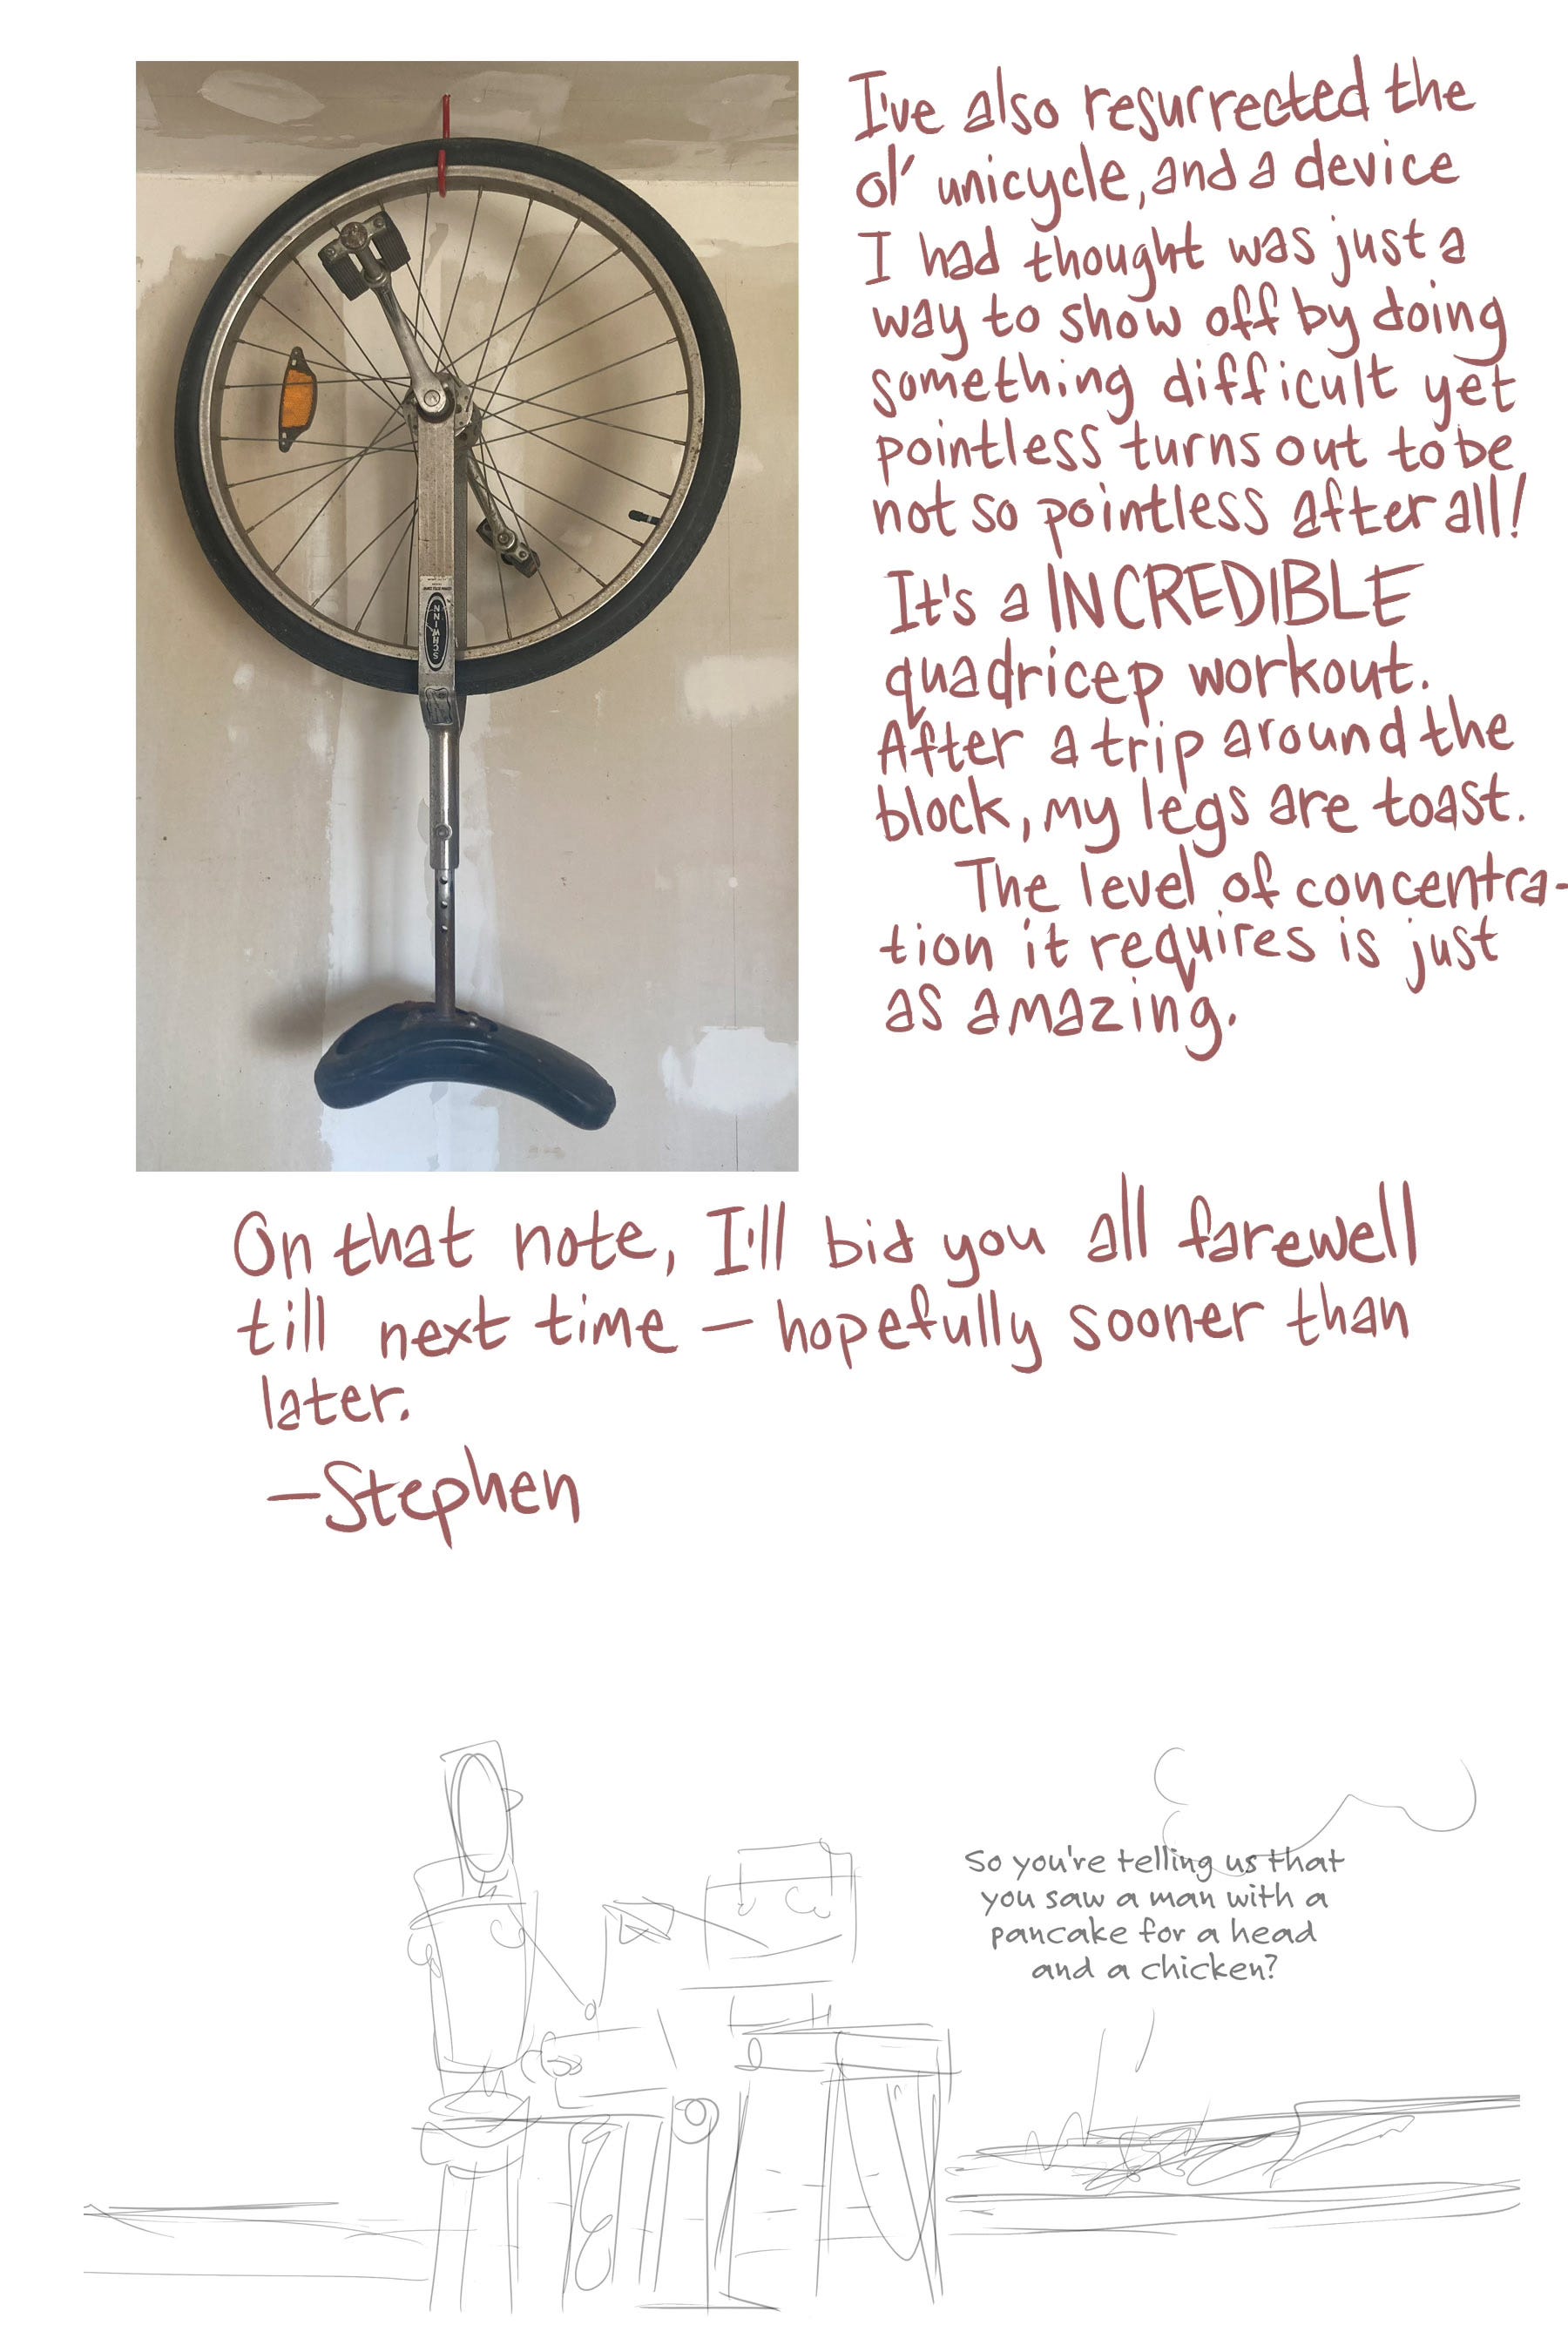 I've also resurrected the
ol' unicycle, and a device
I had thought was just a
way to show off by doing
something difficult yet
pointless turns out to be
not so pointless after all!
It's a INCREDIBLE
quadricep workout.
After a trip around the
block, my legs are toast.
The level of concentra-
tion it requires is just
as amazing.
SCHWINN
On that note, I'll bid you all farewell
till next time – hopefully sooner than
later.
–Stephen
So you're telling us that
you saw a man with a
pancake for a head
and a chicken?